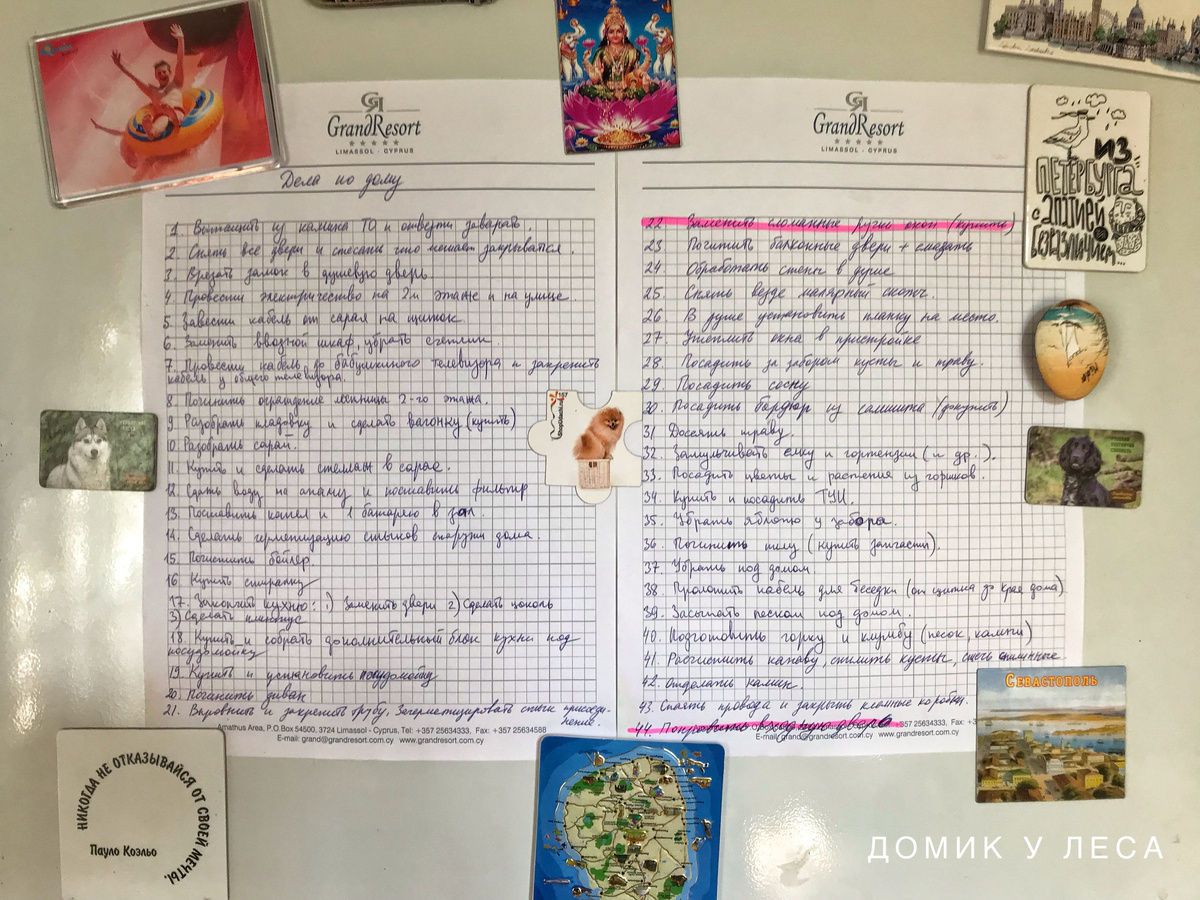 GrandResort
LIMASSOL - CYPRUS
Дела по дому
1. Вытащить из камина ТО и отверти заварить.
2. Снять все двери и стесать что мешает закрываться.
3. Врезать замок в душевую дверь
4. Провести электричество на 2м этаже и на улице.
5. Завести кабель от сарая на щиток.
6. Заменить вводной шкаф, убрать счетчик.
7. Провести кабель до бабушкиного телевизора и закрепить
кабель у общего телевизора.
8. Починить ограждение лестницы 2-го этажа.
9. Разобрать кладовку и сделать вагонку (купить)
10. Разобрать сарай.
11. Купить и сделать стеллаж в сарае.
12. Сдать воду на анализ и поставить фильтр
13. Поставить котел и 1 батарею в зал.
14. Сделать герметизацию стыков снаружи дома.
15. Почистить бойлер.
16. Купить стиралку
17. Закончить кухню: 1) Заменить двери 2) Сделать цоколь
3) Сделать плинтус
18. Купить и собрать дополнительный блок кухни под
посудомойку
19. Купить и установить посудомойку
20. Починить диван
21. Выровнить и закрепить трубу. Загерметизировать стыки присоеди-
нение.
Amathus Area, P.O.Box 54500, 3724 Limassol - Cyprus, Tel: +357 25634333, Fax: +357 25634588
E-mail: grand@grandresort.com.cy www.grandresort.com.cy
GrandResort
LIMASSOL - CYPRUS
22 Заменить сломанные ручки окон (купить)
23 Починить балконные двери + смазать
24 Обработать стены в душе
25. Снять везде малярный скотч.
26. В душе установить планку на место.
27. Утеплить окна в пристройке
28 Посадить за забором кусты и траву.
29. Посадить сосну
30. Посадить бордюр из самшита (докупить)
31 Досеять траву.
32. Замульчивать елку и гортензии (и др.).
33. Посадить цветы и растения из горшков.
34. Купить и посадить ТУИ.
35. Убрать яблоню у забора.
36. Починить пилу (купить запчасти).
37. Убрать под домом.
38. Проложить кабель для беседки (от щитка за края дома)
39. Засыпать песком под домом.
40. Подготовить горку и клумбу (песок, камни)
41. Расчистить канаву, спилить кусты, сжечь спиленные
42. Отделать камин.
43. Спаять провода и закрыть клемные коробки.
44. Поправить входную дверь
+357 25634333, Fax: +3
E-mail: grand@grandresort.com.cy www.grandresort.com.cy
ИЗ
ПЕТЕРБУРГА
С
АПАТИЕЙ
И
БЕЗРАЗЛИЧИЕМ...
СЕВАСТОПОЛЬ
НИКОГДА НЕ ОТКАЗЫВАЙСЯ ОТ СВОЕЙ МЕЧТЫ.
Пауло Коэльо
ДОМИК У ЛЕСА